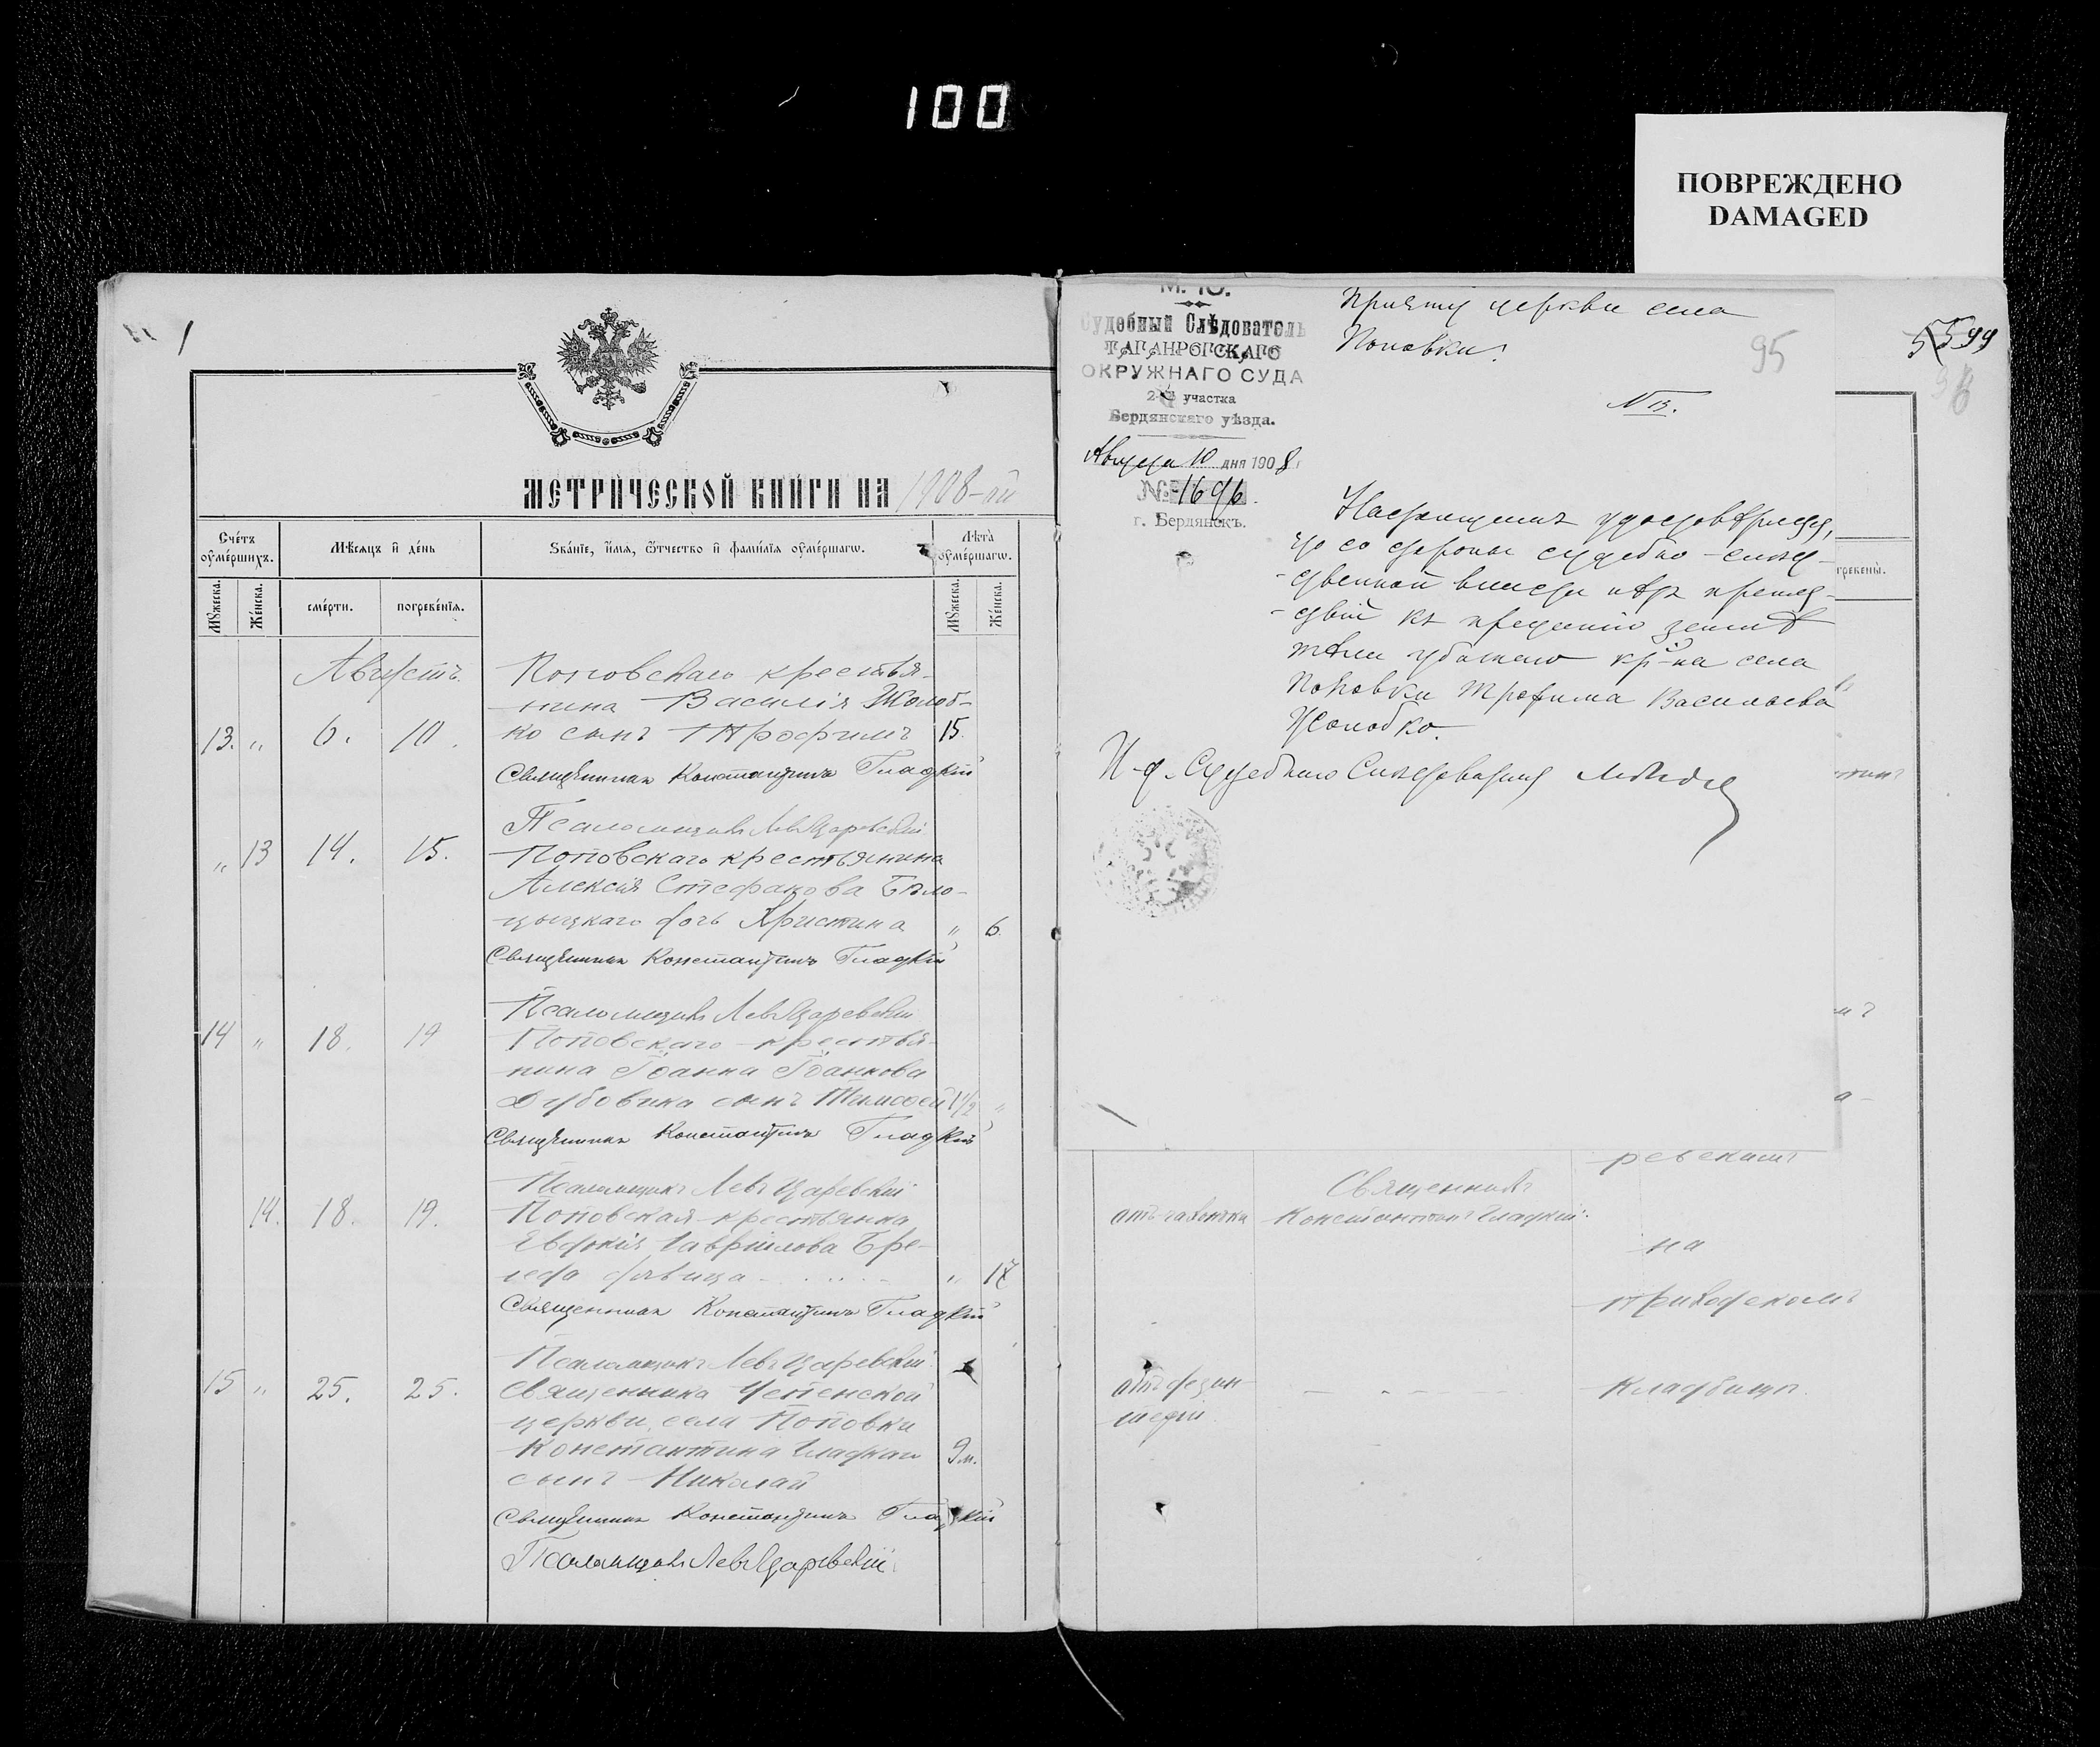 100
ПОВРЕЖДЕНО
DAMAGED
МЕТРИЧЕСКОЙ КНИГИ НА 1908-ой
Счётъ оумёршихъ.
Мѣсяцъ и день
Званіе, имя, отчество и фамилія оумершагw.
Лѣта оумершагw.
Мужеска.
Женска.
смерти.
погребенія.
Мужеска.
Женска.
Августъ
Поповскаго крестья-
нина Василія Жолоб-
13. " 6. 10. ко сынъ Трофимъ 15.
Священникъ Константинъ Гладкій
Псаломщикъ Левъ Царевскій
" 13 14. 15. Поповскаго крестьянина
Алексія Стефанова Бѣло-
дочь Христина " 6.
Священникъ Константинъ Гладкій
Псаломщикъ Левъ Царевскій
14 " 18. 19 Поповскаго крестья-
нина Іоанна Іоаннова
Дубовика сынъ Тимофей 1 1/2 "
Священникъ Константинъ Гладкій
Псаломщикъ Левъ Царевскій
14. 18. 19. Поповская крестьянка
Евдокія Гавриілова
дѣвица " 17
Священникъ Константинъ Гладкій
Псаломщикъ Левъ Царевскій
15 " 25. 25. Священника Успенской
церкви села Поповки
Константина Гладкаго 9 м.
сынъ Николай
Священникъ Константинъ Гладкій
Псаломщикъ Левъ Царевскій
М. Ю.
Судебный Слѣдователь
ТАГАНРОГСКАГО
ОКРУЖНАГО СУДА
2 участка
Бердянскаго уѣзда.
Августа 10 дня 1908
№ 1696
г. Бердянскъ.
Причту церкви села
Поповки.
95
99
Настоящимъ удостовѣряю,
что со стороны судебно-слѣд-
ственной власти нѣтъ препят-
ствій къ преданію землѣ
тѣла убитаго кр-на села
Поповки Трофима Васильева
Жолобко.
И. д. Судебнаго Слѣдователя
гребены.
ребенкомъ
Священникъ
Константинъ Гладкій.
на
приходскомъ
отъ дезин-
теріи
кладбищѣ.